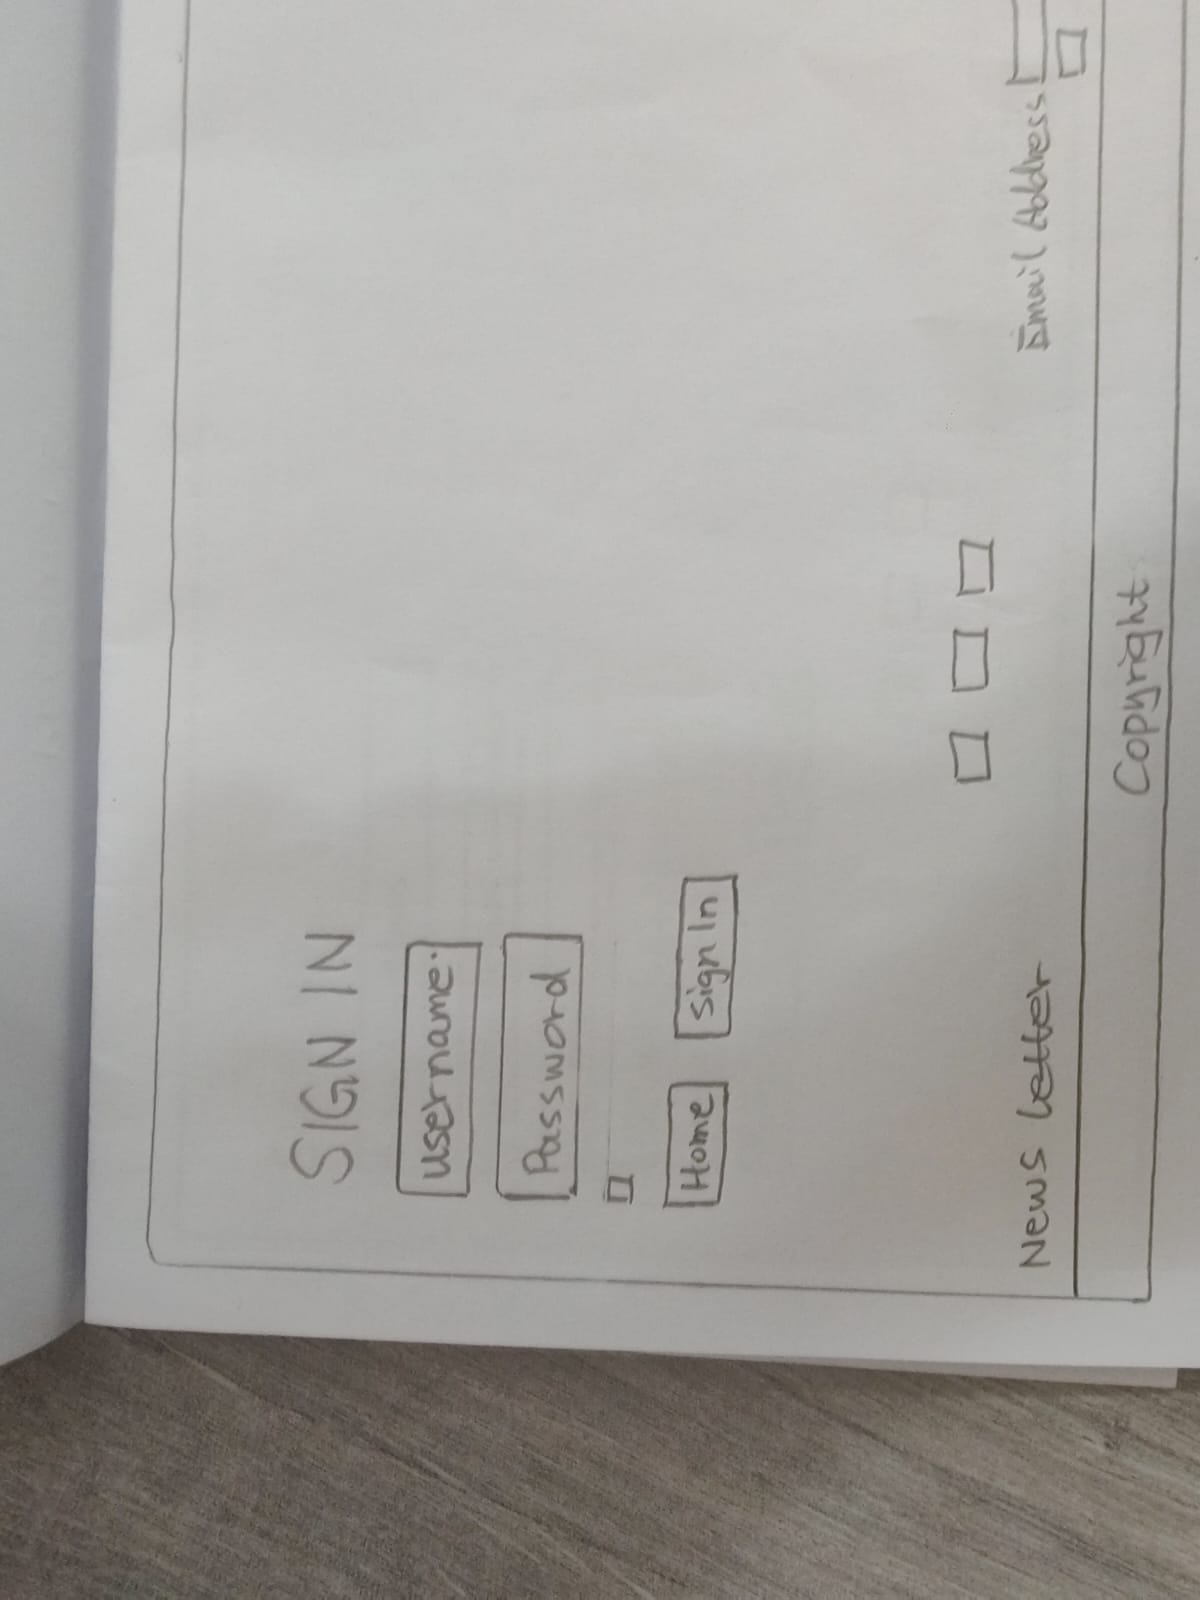 SIGN IN
username
Password
Home Sign In
News letter
Email Address
Copyright